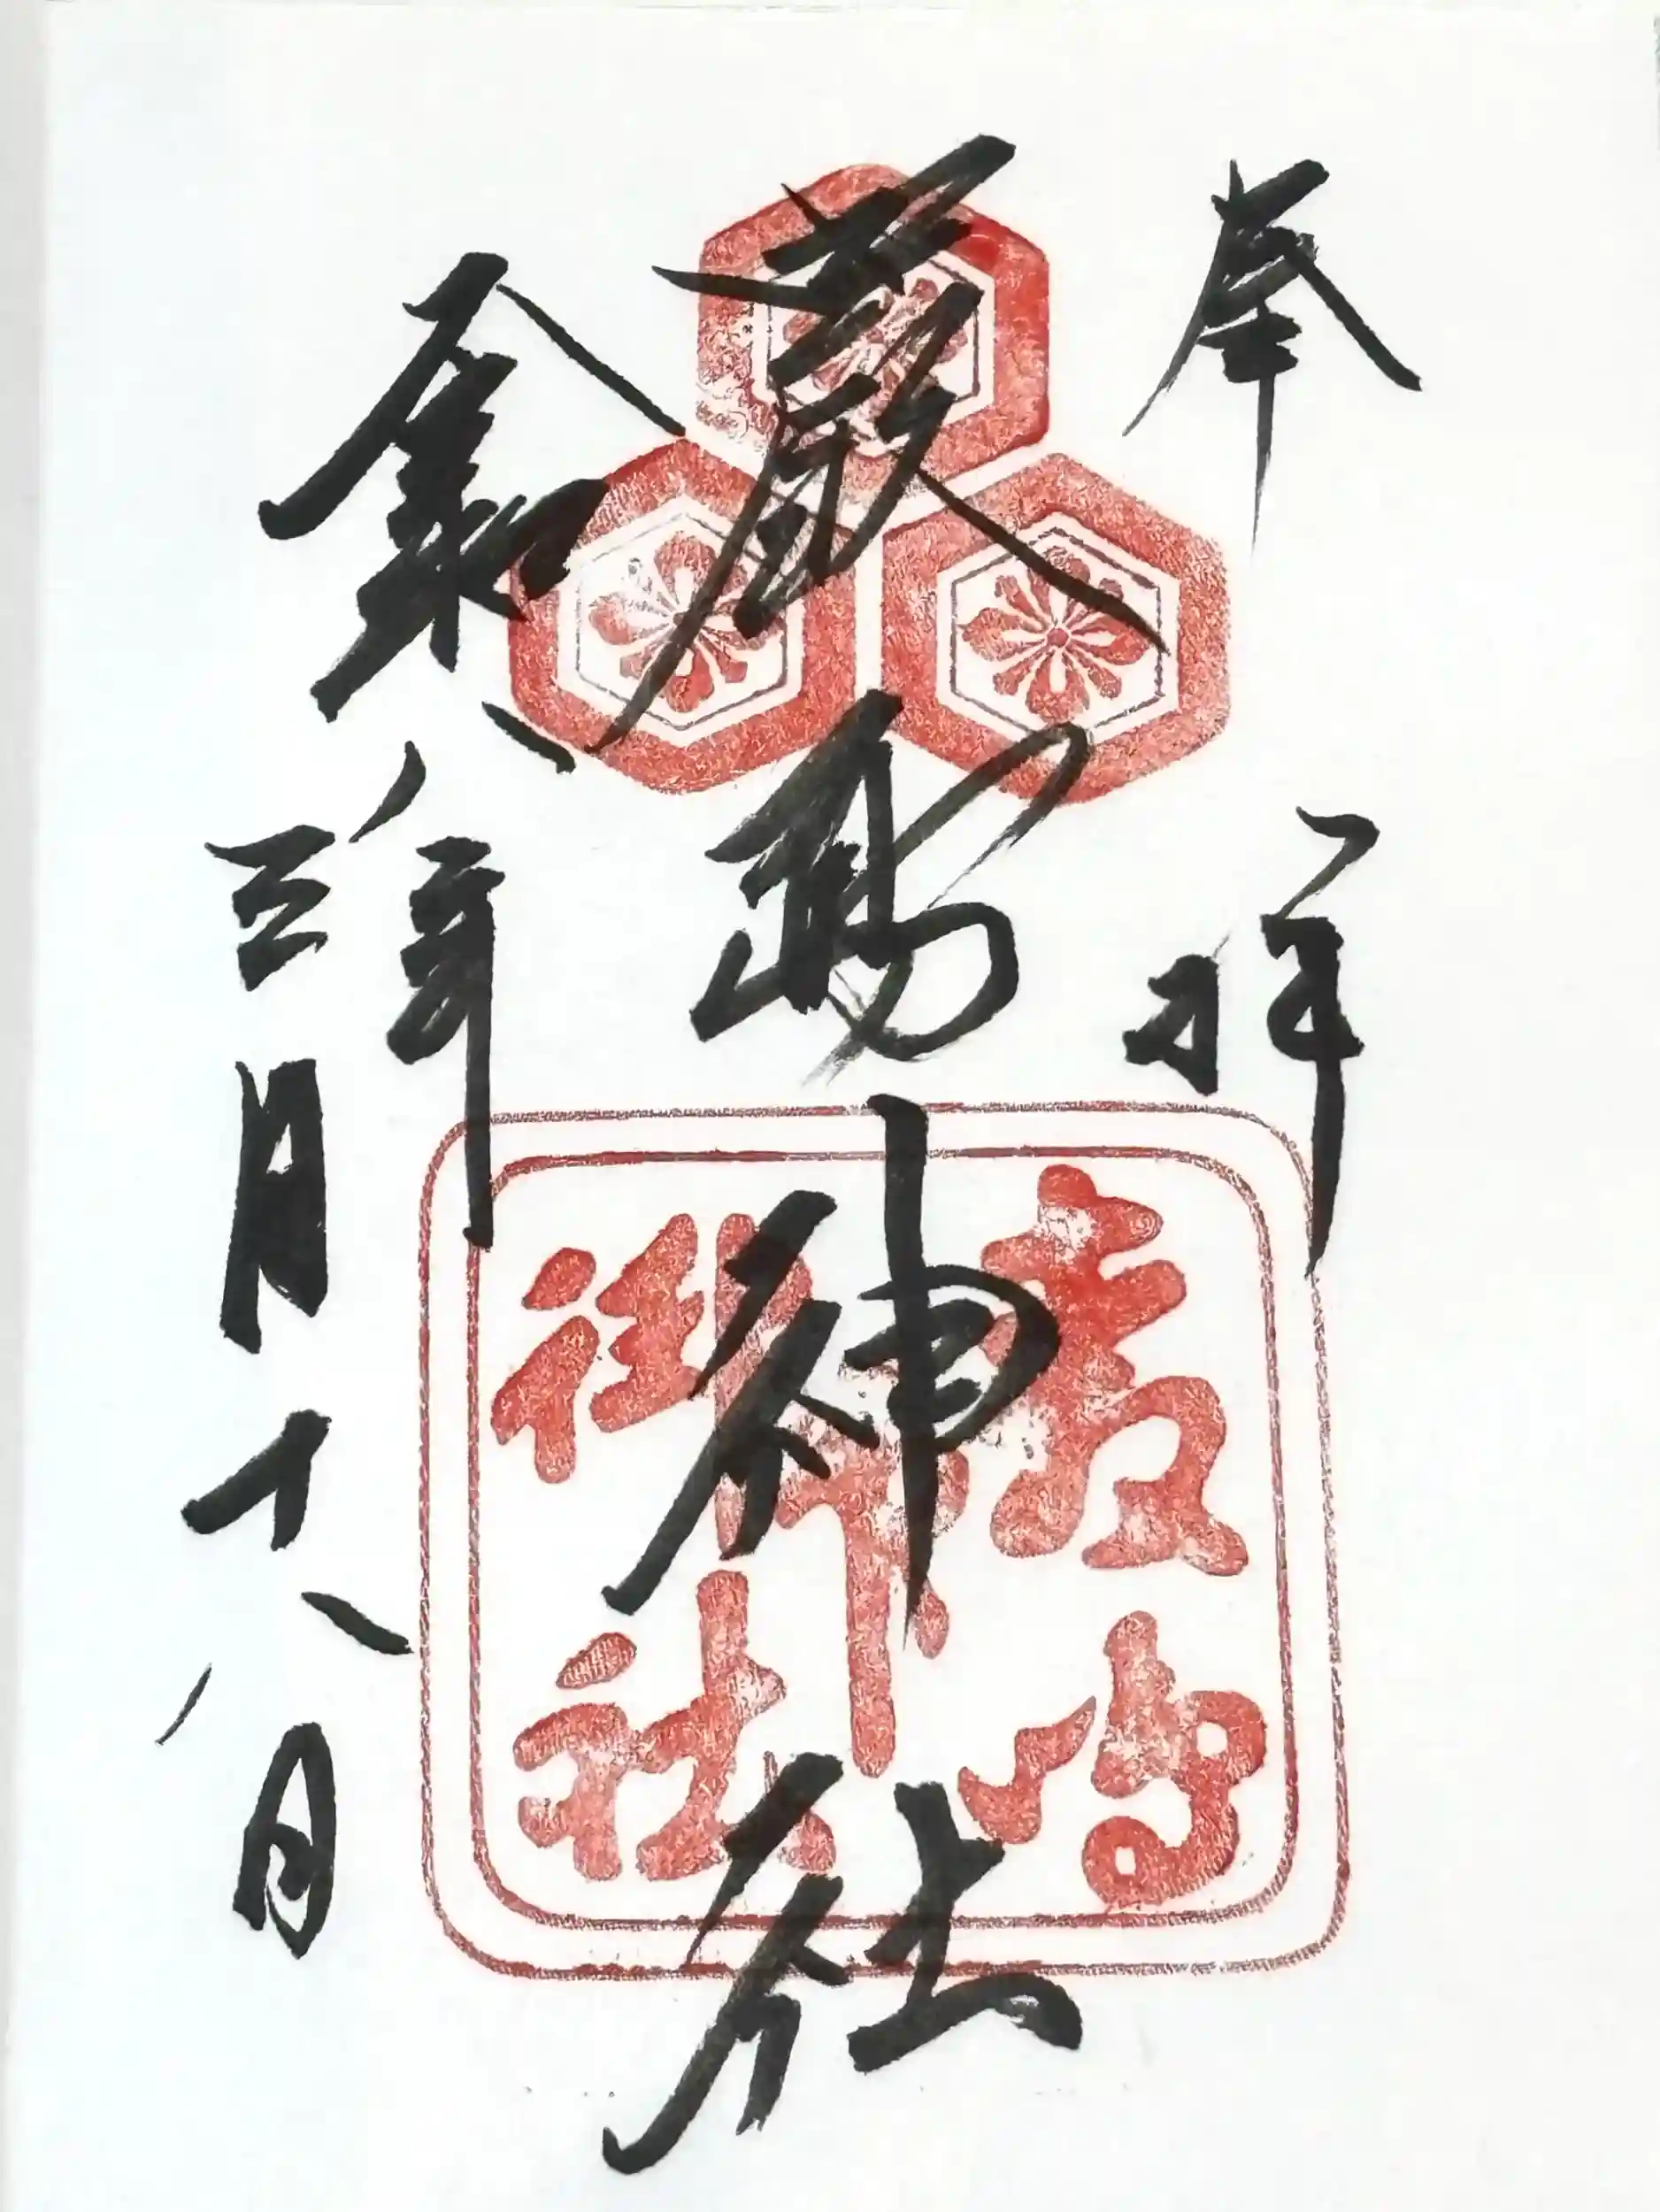 奉拝
嚴島神社
令和八年
三月十八日
嚴島
神社